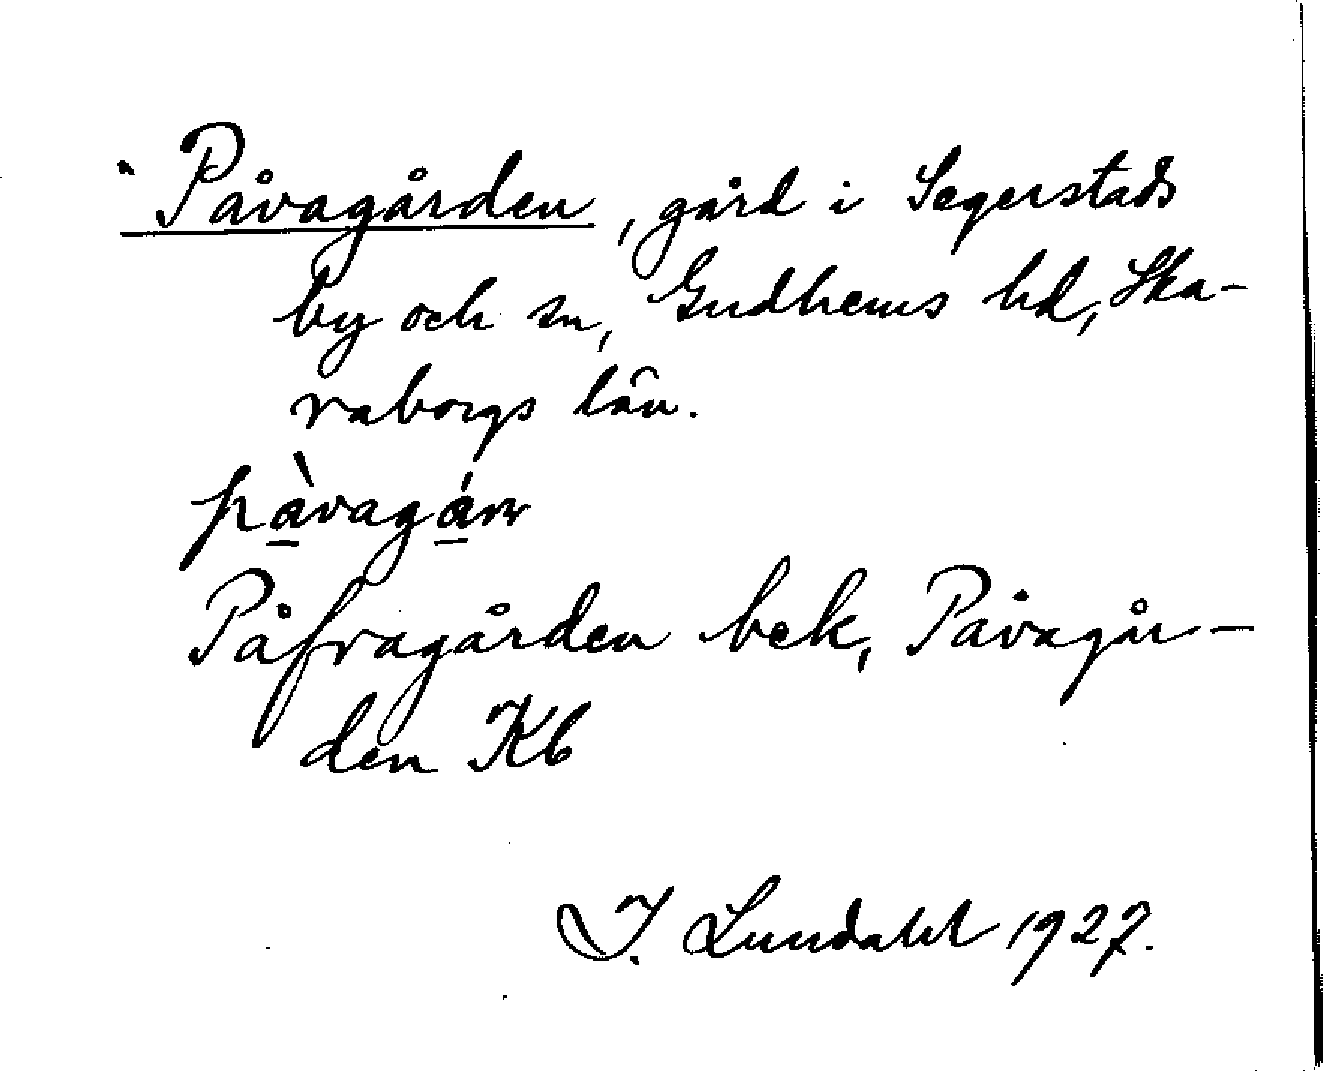 Påvagården, gård i Segerstads
by och sn, Gudhems hd, Ska-
raborgs län.
pàvagár
Påfvagården bek, Påvagår-
den Kb
I. Lundahl 1927.